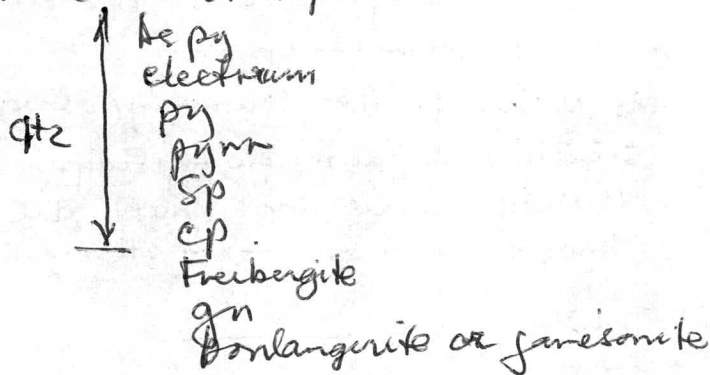 As py
electrum
py
qtz
pyrr
Sp
cp
Freibergite
gn
Boulangerite or jamesonite